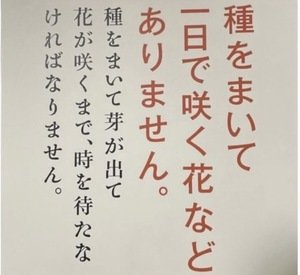 種をまいて
一日で咲く花など
ありません。
種をまいて芽が出て
花が咲くまで、時を待たな
ければなりません。